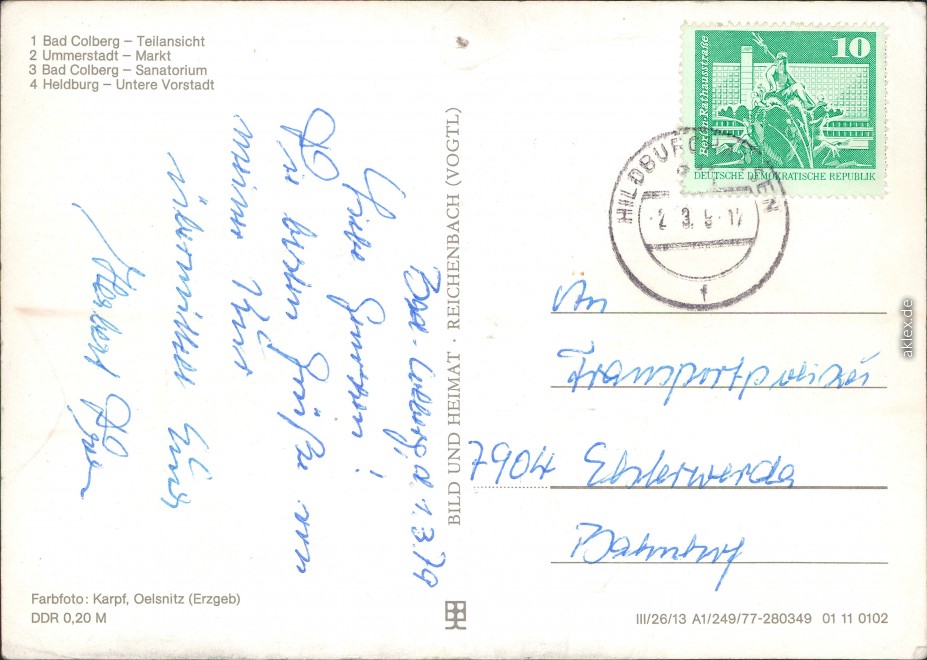 1 Bad Colberg – Teilansicht
2 Ummerstadt – Markt
3 Bad Colberg – Sanatorium
4 Heldburg – Untere Vorstadt
Bad-Colberg, d. 1.3.79
Liebe Genossen!
Die besten Grüße von
meiner Kur
übermittelt Euch
Herbert
BILD UND HEIMAT · REICHENBACH (VOGTL)
10
Berlin, Rathausstraße
DEUTSCHE DEMOKRATISCHE REPUBLIK
HILDBURGHAUSEN
f
An
Transportpolizei
7904 Elsterwerda
Bahnhof
Farbfoto: Karpf, Oelsnitz (Erzgeb)
DDR 0,20 M
III/26/13 A1/249/77-280349 01 11 0102
aklex.de